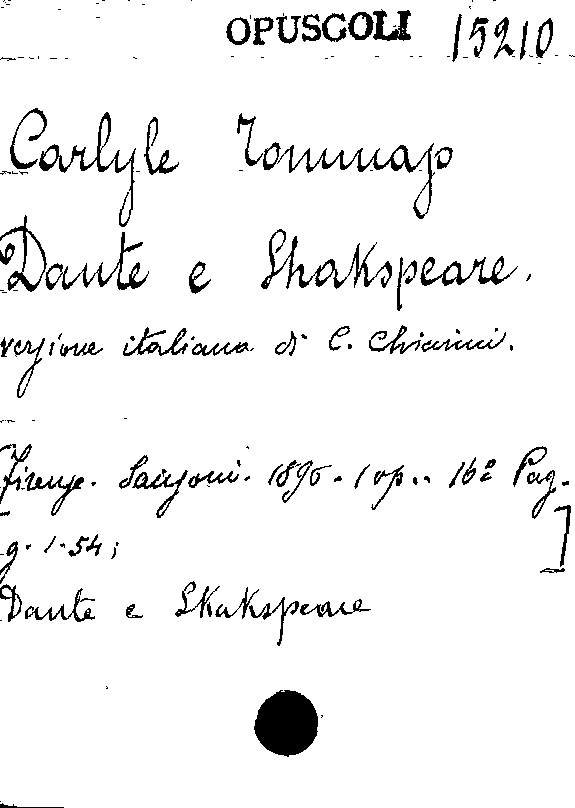 OPUSCOLI 15210
Carlyle Tommaso
Dante e Shakspeare.
versione italiana di C. Chiarini.
Firenze. Sansoni. 1896. 1 op.. 16º Pag.
g. 1-54;
]
Dante e Shakspeare